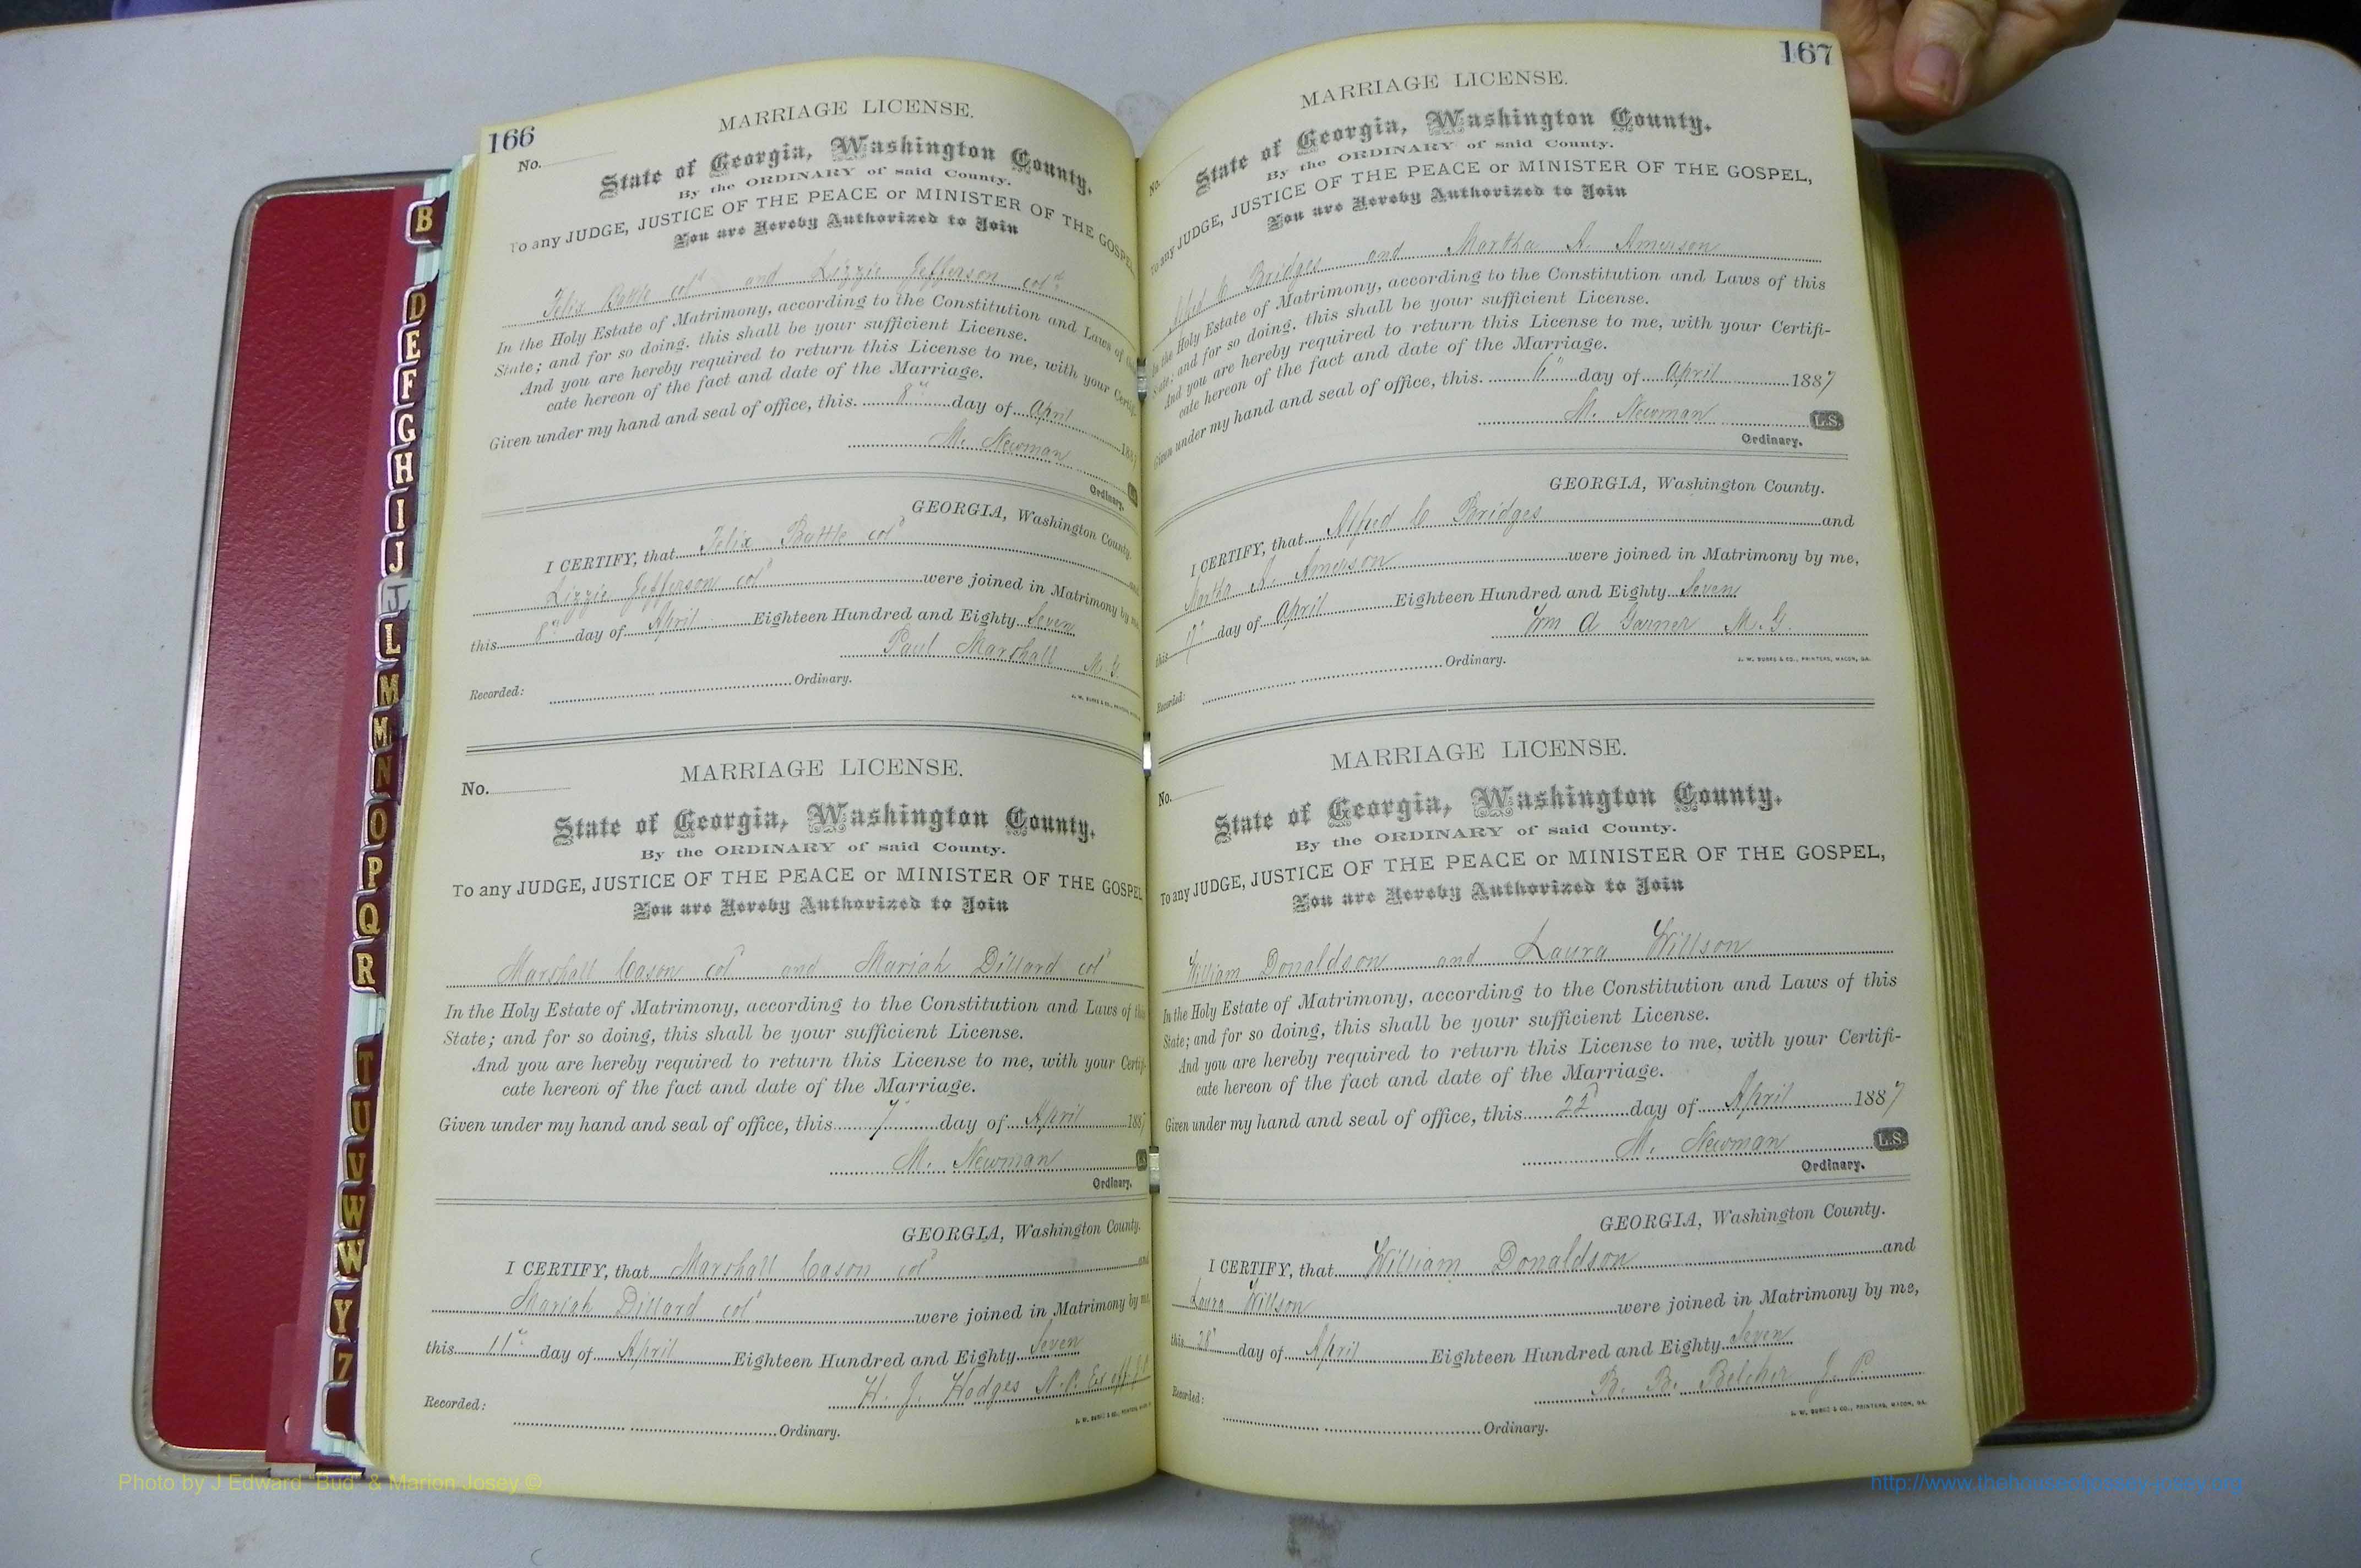 166
MARRIAGE LICENSE.
No.
State of Georgia, Washington County.
By the ORDINARY of said County.
To any JUDGE, JUSTICE OF THE PEACE or MINISTER OF THE GOSPEL,
You are Hereby Authorized to Join
Felix Battle col^d and Lizzie Jefferson col^d
In the Holy Estate of Matrimony, according to the Constitution and Laws of
State; and for so doing, this shall be your sufficient License.
And you are hereby required to return this License to me, with your Certifi-
cate hereon of the fact and date of the Marriage.
Given under my hand and seal of office, this 8" day of April 1887
M. Newman
Ordinary.
GEORGIA, Washington County.
I CERTIFY, that Felix Battle col^d and
Lizzie Jefferson col^d were joined in Matrimony by me,
this 8" day of April Eighteen Hundred and Eighty Seven
Paul Marshall M. G.
Recorded: Ordinary.
J. W. BURKE & CO., PRINTERS, MACON
MARRIAGE LICENSE.
No.
State of Georgia, Washington County.
By the ORDINARY of said County.
To any JUDGE, JUSTICE OF THE PEACE or MINISTER OF THE GOSPEL
You are Hereby Authorized to Join
Marshall Cason col^d and Mariah Dillard col^d
In the Holy Estate of Matrimony, according to the Constitution and Laws of this
State; and for so doing, this shall be your sufficient License.
And you are hereby required to return this License to me, with your Certifi-
cate hereon of the fact and date of the Marriage.
Given under my hand and seal of office, this 7" day of April 1887
M. Newman L.S.
Ordinary.
GEORGIA, Washington County.
I CERTIFY, that Marshall Cason col^d and
Mariah Dillard col^d were joined in Matrimony by me
this 11" day of April Eighteen Hundred and Eighty Seven
H. J. Hodges N. P. Ex off J P
Recorded: Ordinary.
J. W. BURKE & CO., PRINTERS
167
MARRIAGE LICENSE.
No.
State of Georgia, Washington County.
By the ORDINARY of said County.
To any JUDGE, JUSTICE OF THE PEACE or MINISTER OF THE GOSPEL,
You are Hereby Authorized to Join
Alfred C Bridges and Martha A. Amerson
In the Holy Estate of Matrimony, according to the Constitution and Laws of this
State; and for so doing, this shall be your sufficient License.
And you are hereby required to return this License to me, with your Certifi-
cate hereon of the fact and date of the Marriage.
Given under my hand and seal of office, this 6" day of April 1887
M. Newman L.S.
Ordinary.
GEORGIA, Washington County.
I CERTIFY, that Alfred C Bridges and
Martha A. Amerson were joined in Matrimony by me,
this day of April Eighteen Hundred and Eighty Seven
Wm A Garner M. G.
Recorded: Ordinary.
J. W. BURKE & CO., PRINTERS, MACON, GA.
MARRIAGE LICENSE.
No.
State of Georgia, Washington County.
By the ORDINARY of said County.
To any JUDGE, JUSTICE OF THE PEACE or MINISTER OF THE GOSPEL,
You are Hereby Authorized to Join
William Donaldson and Laura Willson
In the Holy Estate of Matrimony, according to the Constitution and Laws of this
State; and for so doing, this shall be your sufficient License.
And you are hereby required to return this License to me, with your Certifi-
cate hereon of the fact and date of the Marriage.
Given under my hand and seal of office, this 22^d day of April 1887
M. Newman L.S.
Ordinary.
GEORGIA, Washington County.
I CERTIFY, that William Donaldson and
Laura Willson were joined in Matrimony by me,
this 28" day of April Eighteen Hundred and Eighty Seven
B. B. Belcher J. P.
Recorded: Ordinary.
J. W. BURKE & CO., PRINTERS, MACON, GA.
B
D
E
F
G
H
I
J
J
L
M
M
N
O
P
Q
R
T
U
V
W
W
Y
Z
Photo by J Edward "Bud" & Marion Josey ©
http://www.thehouseofjossey-josey.org